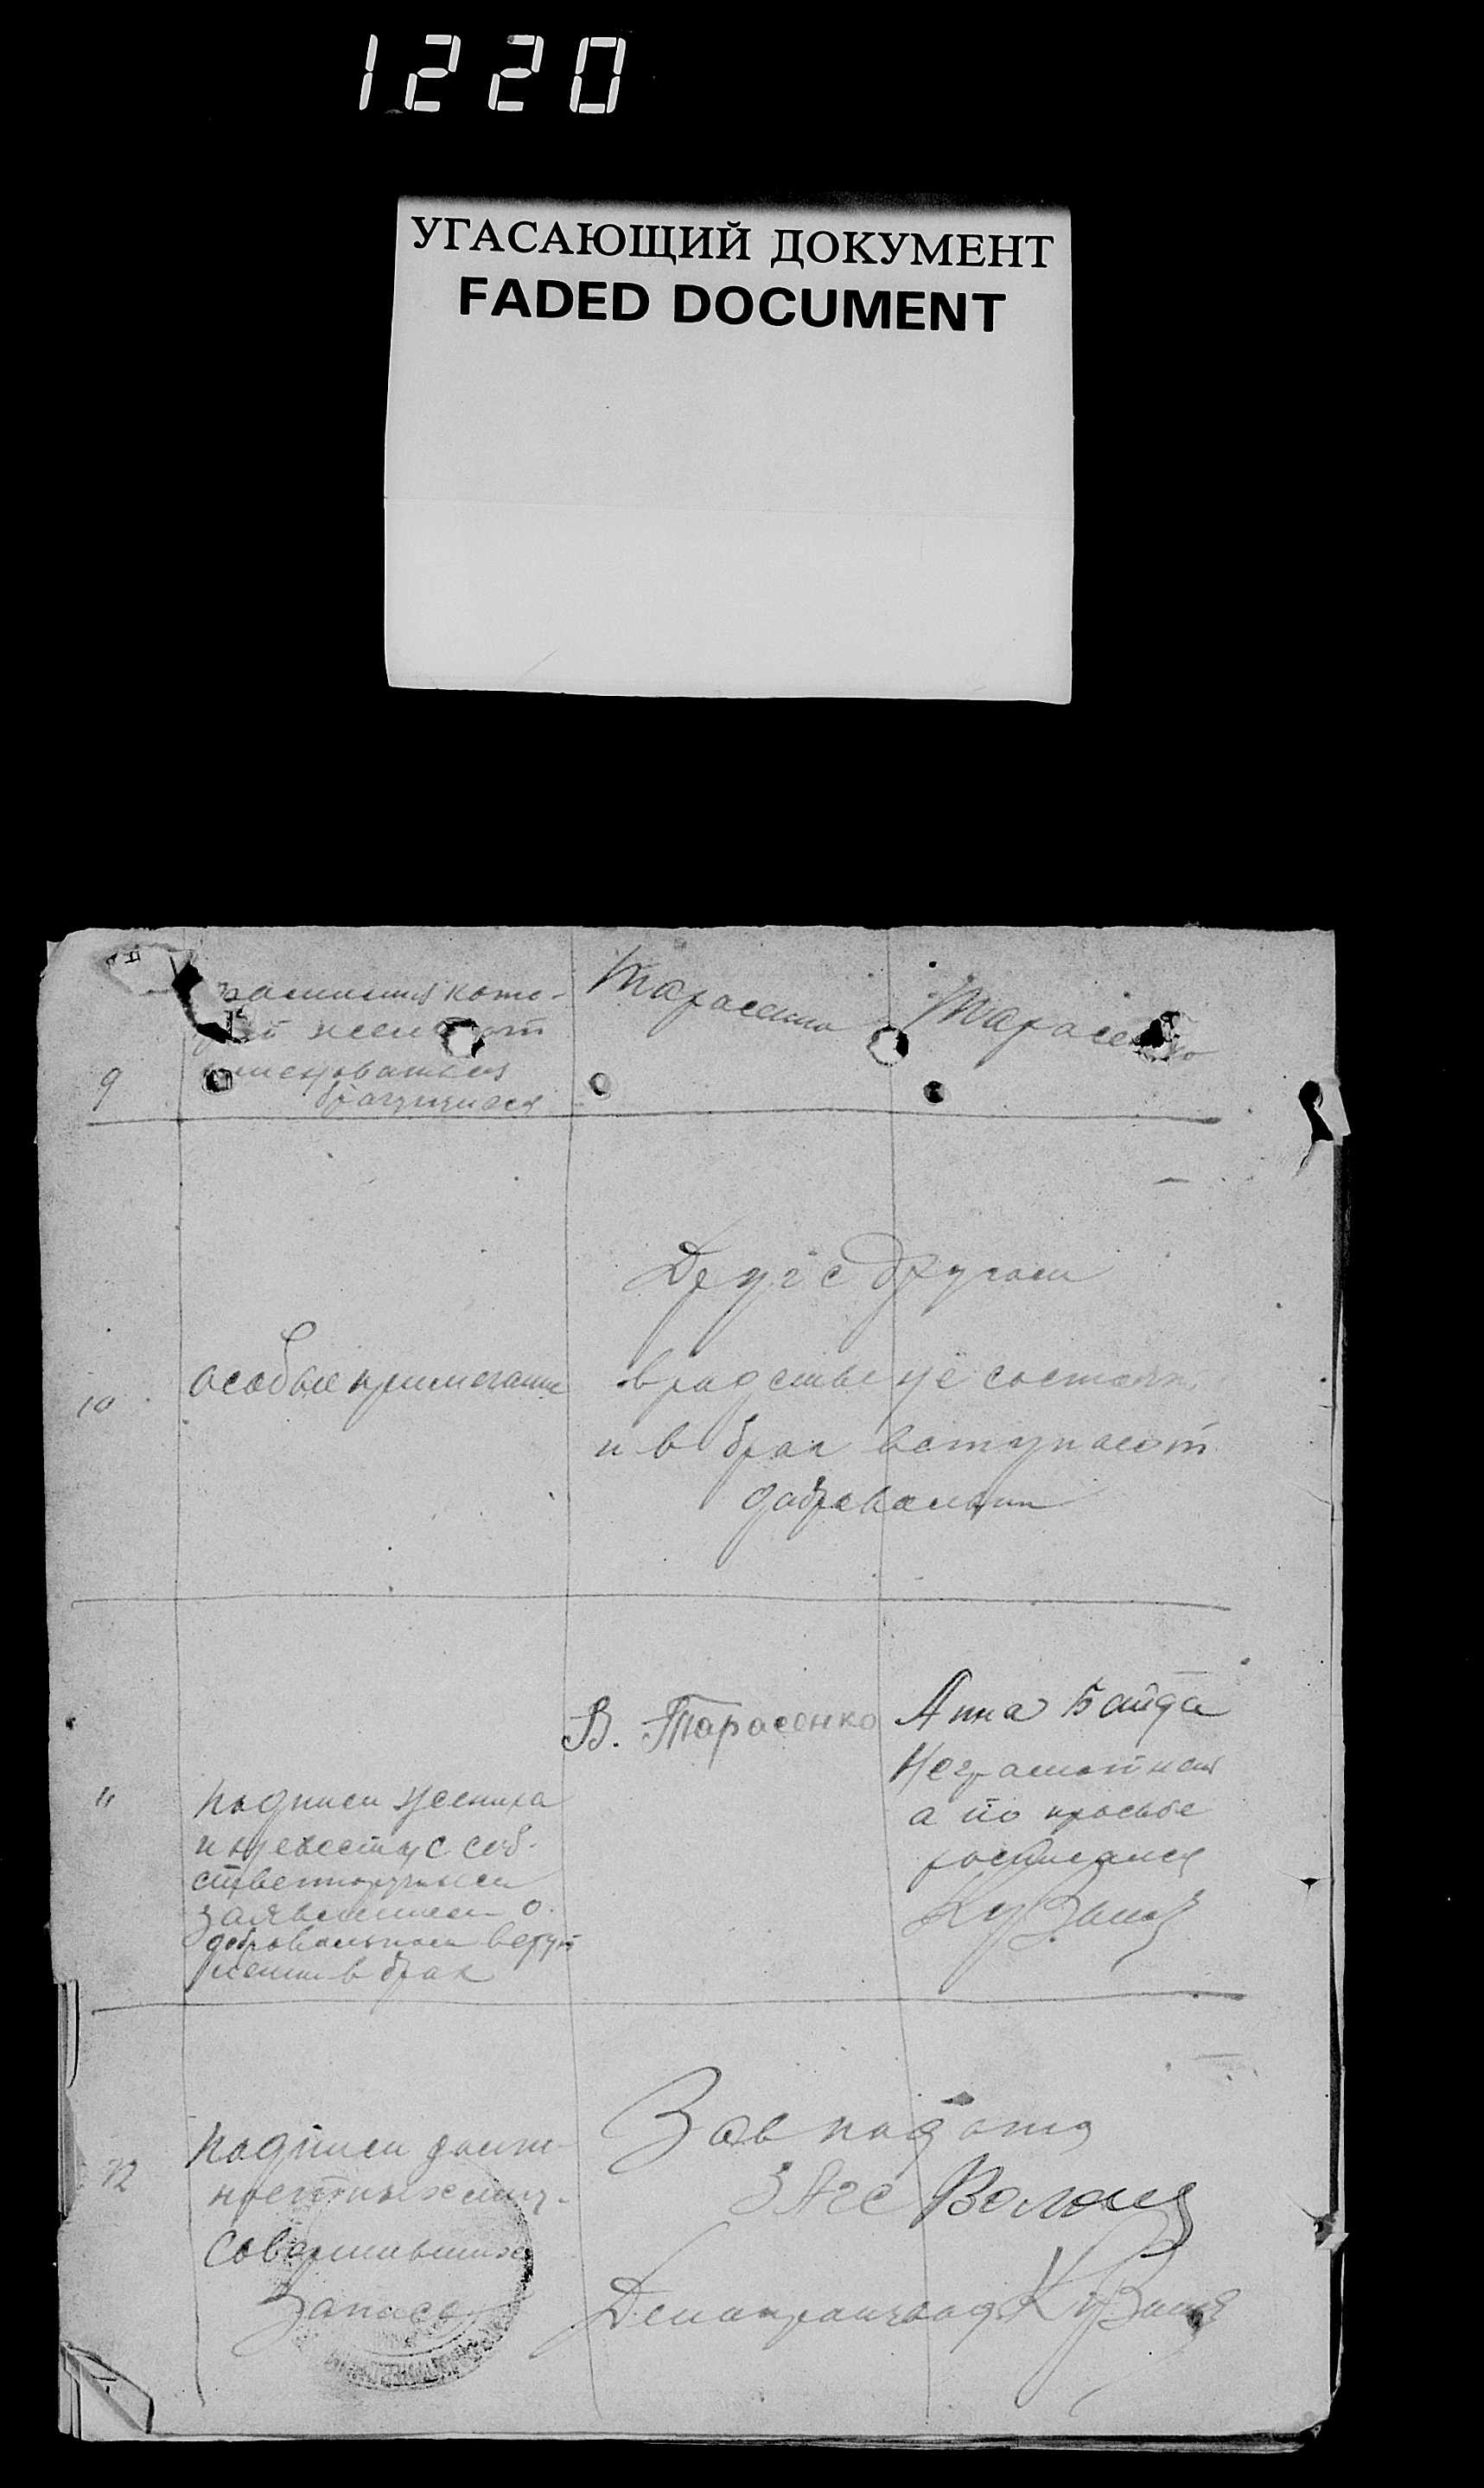 1220
УГАСАЮЩИЙ ДОКУМЕНТ
FADED DOCUMENT
9
фамилия кото-
желают
именоваться
брачущиеся
Тарасенко
Тарасенко
10
особые примечание
Друг с другом
в родстве не состоят
и в брак вступают
добровольно
11
подписи жениха
и невесты с соб-
ственноручным
заявлением о
добровольном вступ
лении в брак
В. Тарасенко
Анна Байда
Неграмотная
а по просьбе
росписался
12
подписи долж-
ностных лиц
совершивших
Запись
Зав под отд
ЗАГС